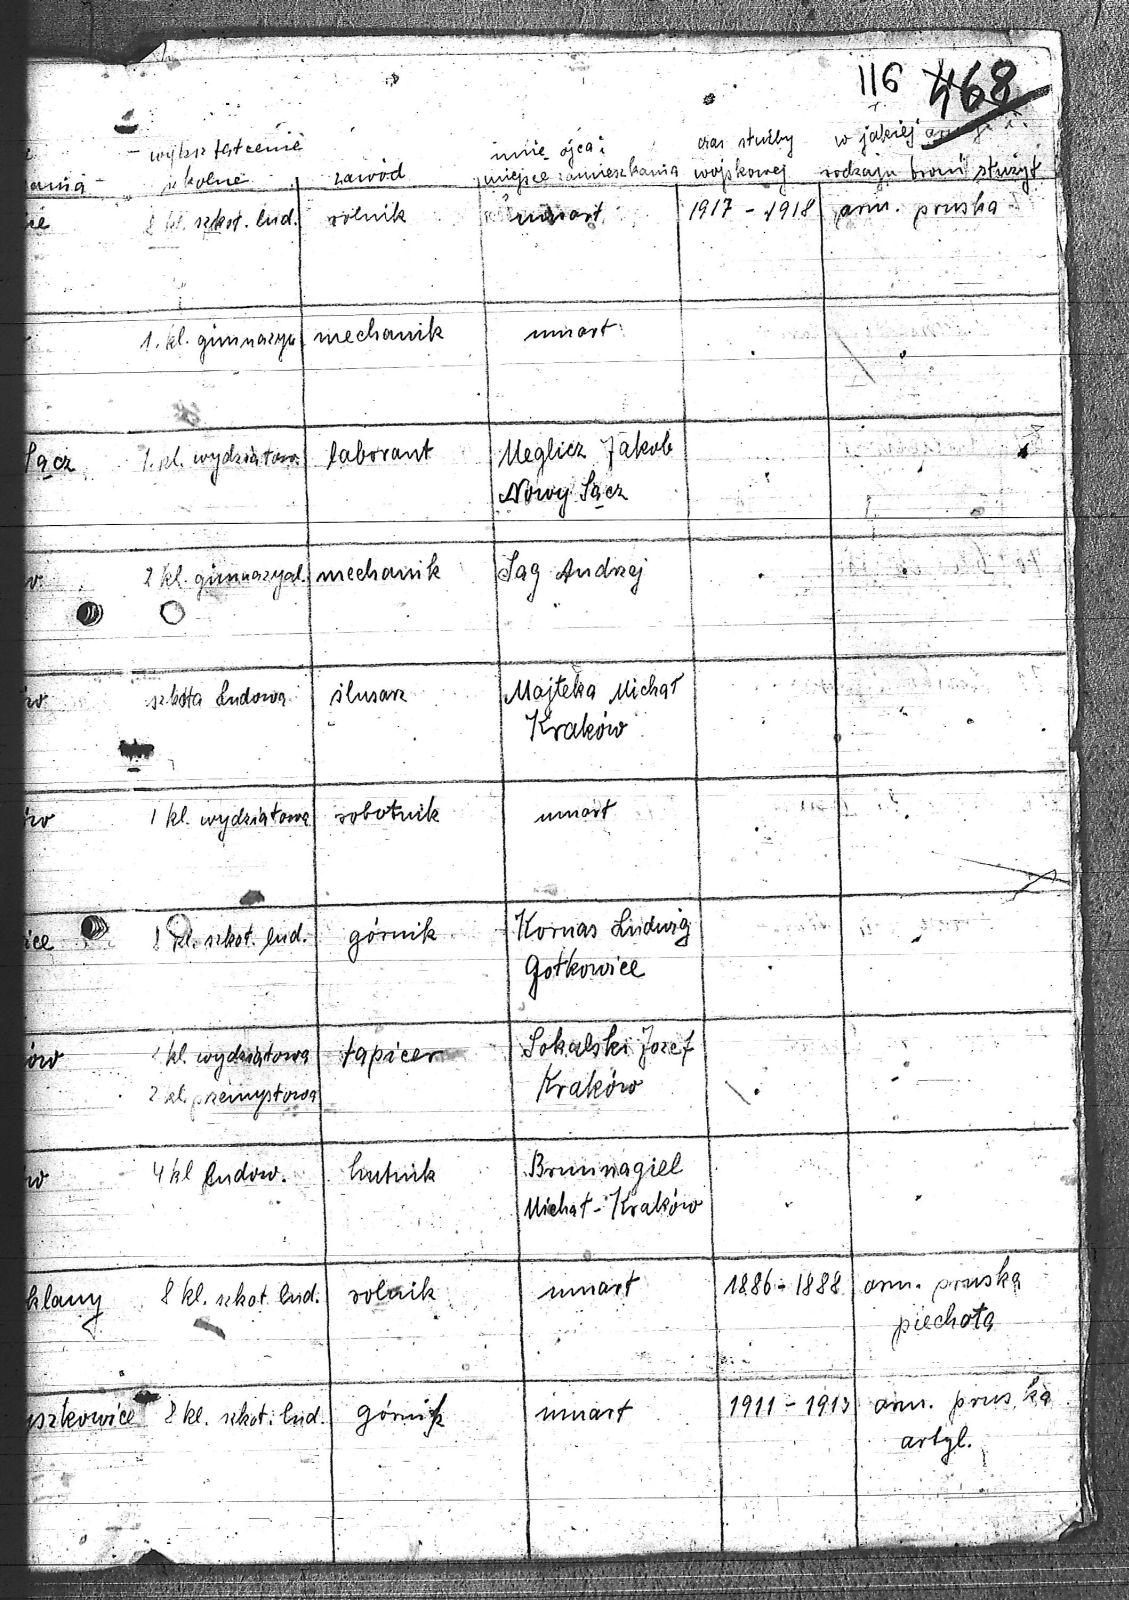 116 468
wykształcenie
szkolne
zawód
imię ojca i
miejsce zamieszkania
czas służby
wojskowej
w jakiej armji i
rodzaju broni służył
8 kl. szkoł. lud. rolnik umarł 1917 - 1918 arm. pruska
1. kl. gimnazyu mechanik umarł
Sącz 1. kl. wydziałow. laborant Meglicz Jakob
Nowy Sącz
2 kl. gimnazyal. mechanik Sag Andrzej
szkoła ludowa ślusarz Majteka Michał
Kraków
1 kl. wydziałowa robotnik umarł
ice 8 kl. szkoł. lud. górnik Kornas Ludwig
Gołkowice
ów kl. wydziałowa tapicer Sokalski Jozef
2 kl. przemysłowa Kraków
4 kl ludow. hutnik Brunnagiel
Michał - Kraków
klany 8 kl. szkoł. lud. rolnik umarł 1886 - 1888 arm. pruska
piechota
yszkowice 8 kl. szkoł. lud. górnik umarł 1911 - 1913 arm. pruska
artyl.